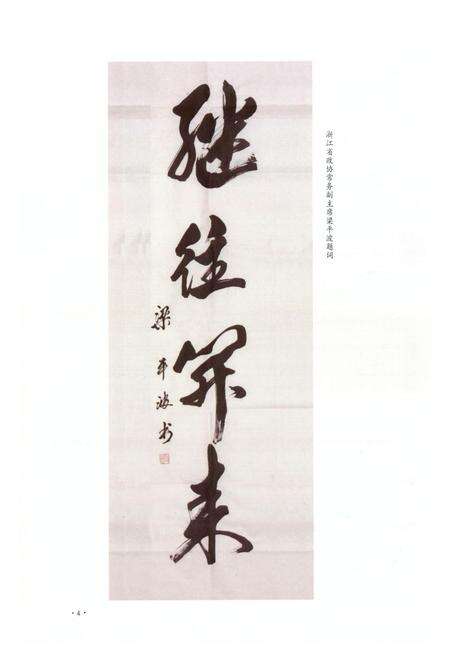 浙江省政协常务副主席梁平波题词
继往开来
梁平波书
·4·